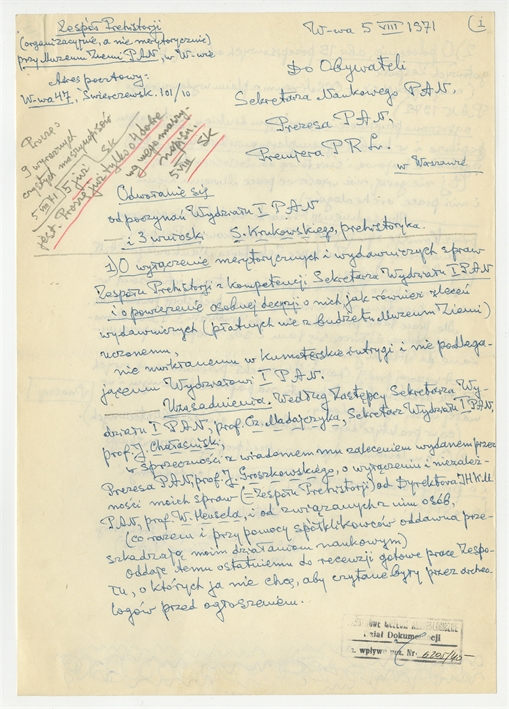 Zespół Prehistorji
(organizacyjnie, a nie merytorycznie)
przy Muzeum Ziemi P.A.N, w W-wie
Adres pocztowy:
W-wa 47, Świerczewsk. 101/10
W-wa 5 VIII 1971
(1
Do Obywateli
Sekretarza Naukowego P.A.N,
Prezesa P.A.N,
Premiera P R L.
w Warszawie
Proszę:
9 wyraźnych
czystych maszynopisów
5 VIII 71 SK
5 już
jest. Proszę już tylko o 4 dobre
SK
5 VIII
Odwołanie się
od poczynań Wydziału I P A N
i 3 wnioski S. Krukowskiego, prehistoryka.
1) O wyłączenie merytorycznych i wydawniczych spraw
Zespołu Prehistorji z kompetencji Sekretarza Wydziału I P A N
i o powzięcie osobnej decyzji o nich jak również zleceń
wydawniczych (płatnych nie z budżetu Muzeum Ziemi)
uczonemu,
nie uwikłanemu w kumoterskie intrygi i nie podlega-
jącemu Wydziałowi I P A N.
Uzasadnienie. Według Zastępcy Sekretarza Wy-
działu I P A N, prof. Cz. Madajczyka, Sekretarz Wydziału I P A N,
prof. J. Chałasiński,
w sprzeczności z wiadomem mu zaleceniem wydanem przez
Prezesa P.A.N prof. J. Groszkowskiego, o wyłączeniu i niezależ-
ności moich spraw (= Zespołu Prehistorji) od Dyrektora IHKM
P.A.N, prof. W. Hensela, i od związanych z nim osób,
(co razem i przy pomocy spółklikowców oddawna prze-
szkadzają moim działaniom naukowym)
oddaje temu ostatniemu do recenzji gotowe prace Zespo-
łu, o których ja nie chcę, aby czytane były przez archeo-
logów przed ogłoszeniem.
Dział Dokumentacji
wpływu Nr 6205/40